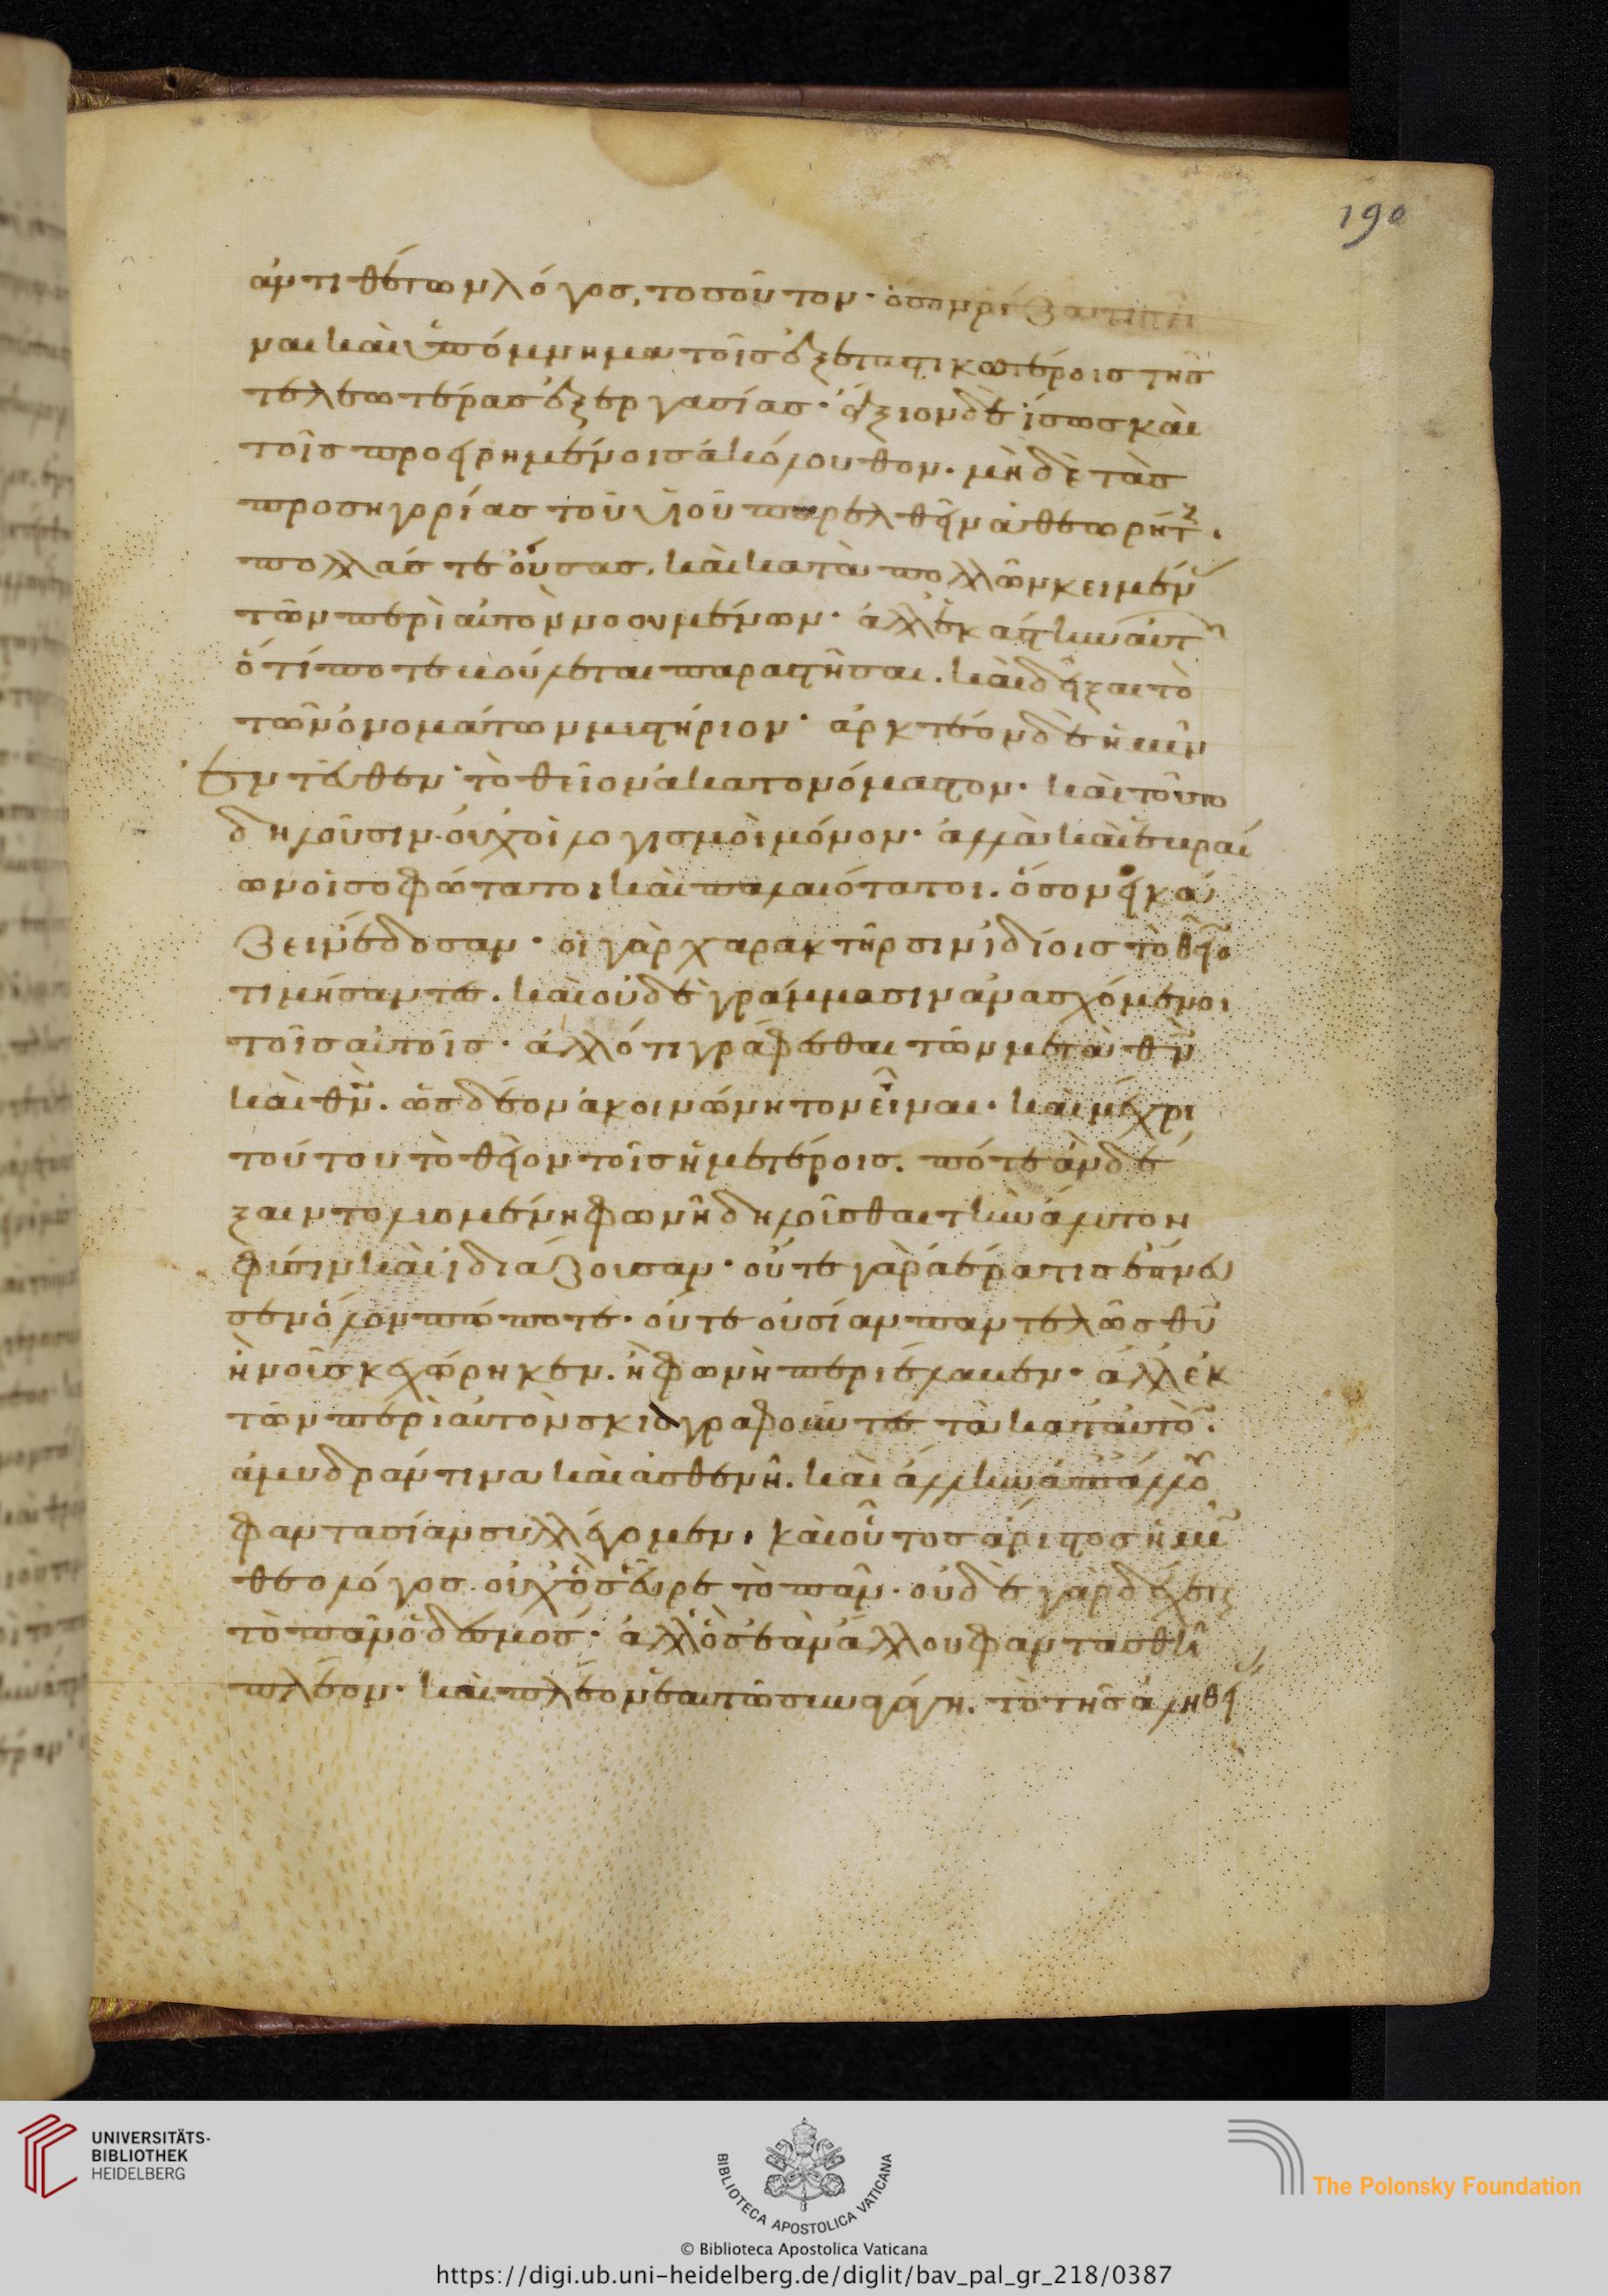 ἀντιθέτων λόγος, τοσοῦτον· ὅσον ῥίζα τις εἶ
ναι καὶ ὑπόμνημα τοῖς ἐξεταστικωτέροις τῆς
τελεωτέρας ἐξεργασίας· ἄξιον δὲ ἴσως καὶ
τοῖς προειρημένοις ἀκόλουθον. μὴ δὲ τὰς
προσηγορίας τοῦ υἱοῦ παρελθεῖν ἀθεωρήτ.
πολλάς τε οὔσας. καὶ κατὰ πολλῶν κειμέν
τῶν περὶ αὐτὸν νοουμένων· ἀλλ' ἑκάστην αὐτ
ὅ τί ποτε βούλεται παραστῆσαι. καὶ δεῖξαι τὸ
τῶν ὀνομάτων μυστήριον· ἀρκτέον δὲ ἡμῖν
ἐντεῦθεν· τὸ θεῖον ἀκατονόμαστον· καὶ τοῦτο
δηλοῦσιν· οὐχ οἱ λογισμοὶ μόνον· ἀλλὰ καὶ ἑβραί
ων οἱ σοφώτατοι καὶ παλαιότατοι. ὅσον εἰκά
ζειν ἔδοσαν· οἱ γὰρ χαρακτῆρσιν ἰδίοις τὸ θεῖο
τιμήσαντες. καὶ οὐδὲ γράμμασιν ἀνασχόμενοι
τοῖς αὐτοῖς· ἄλλό τι γράφεσθαι τῶν μετὰ θν
καὶ θν. ὡς δέον ἀκοινώνητον εἶναι· καὶ μέχρι
τούτου τὸ θεῖον τοῖς ἡμετέροις. πότε ἂν δέ
ξαιντο λυομένη φωνῆ δηλοῦσθαι τὴν ἄλυτον
φύσιν καὶ ἰδιάζουσαν· οὔτε γὰρ ἀέρα τις ἔπνευ
σεν ὅλον πώποτε· οὔτε οὐσίαν παντελῶς θυ
ἢ νοῦς κεχώρηκεν. ἢ φωνὴ περιέλαβεν· ἀλλ' ἐκ
τῶν περὶ αὐτὸν σκιαγραφοῦντες τὰ κατ' αὐτό.
ἀμυδράν τινα καὶ ἀσθενῆ. καὶ ἄλλην ἀπ' ἄλλου
φαντασίαν συλλέγομεν· καὶ οὗτος ἄριστος ἡμῖ
θεολόγος. οὐχ ὃς εὗρε τὸ πᾶν· οὐδὲ γὰρ δέχεται
τὸ πᾶν ὁ δεσμός· ἀλλ' ὃς ἐὰν ἄλλου φαντασθῆ
πλέον· καὶ πλέον ἐν αὐτῷ συναγάγη. τὸ τῆς ἀληθεί
190
UNIVERSITÄTS-
BIBLIOTHEK
HEIDELBERG
BIBLIOTECA APOSTOLICA VATICANA
The Polonsky Foundation
© Biblioteca Apostolica Vaticana
https://digi.ub.uni-heidelberg.de/diglit/bav_pal_gr_218/0387